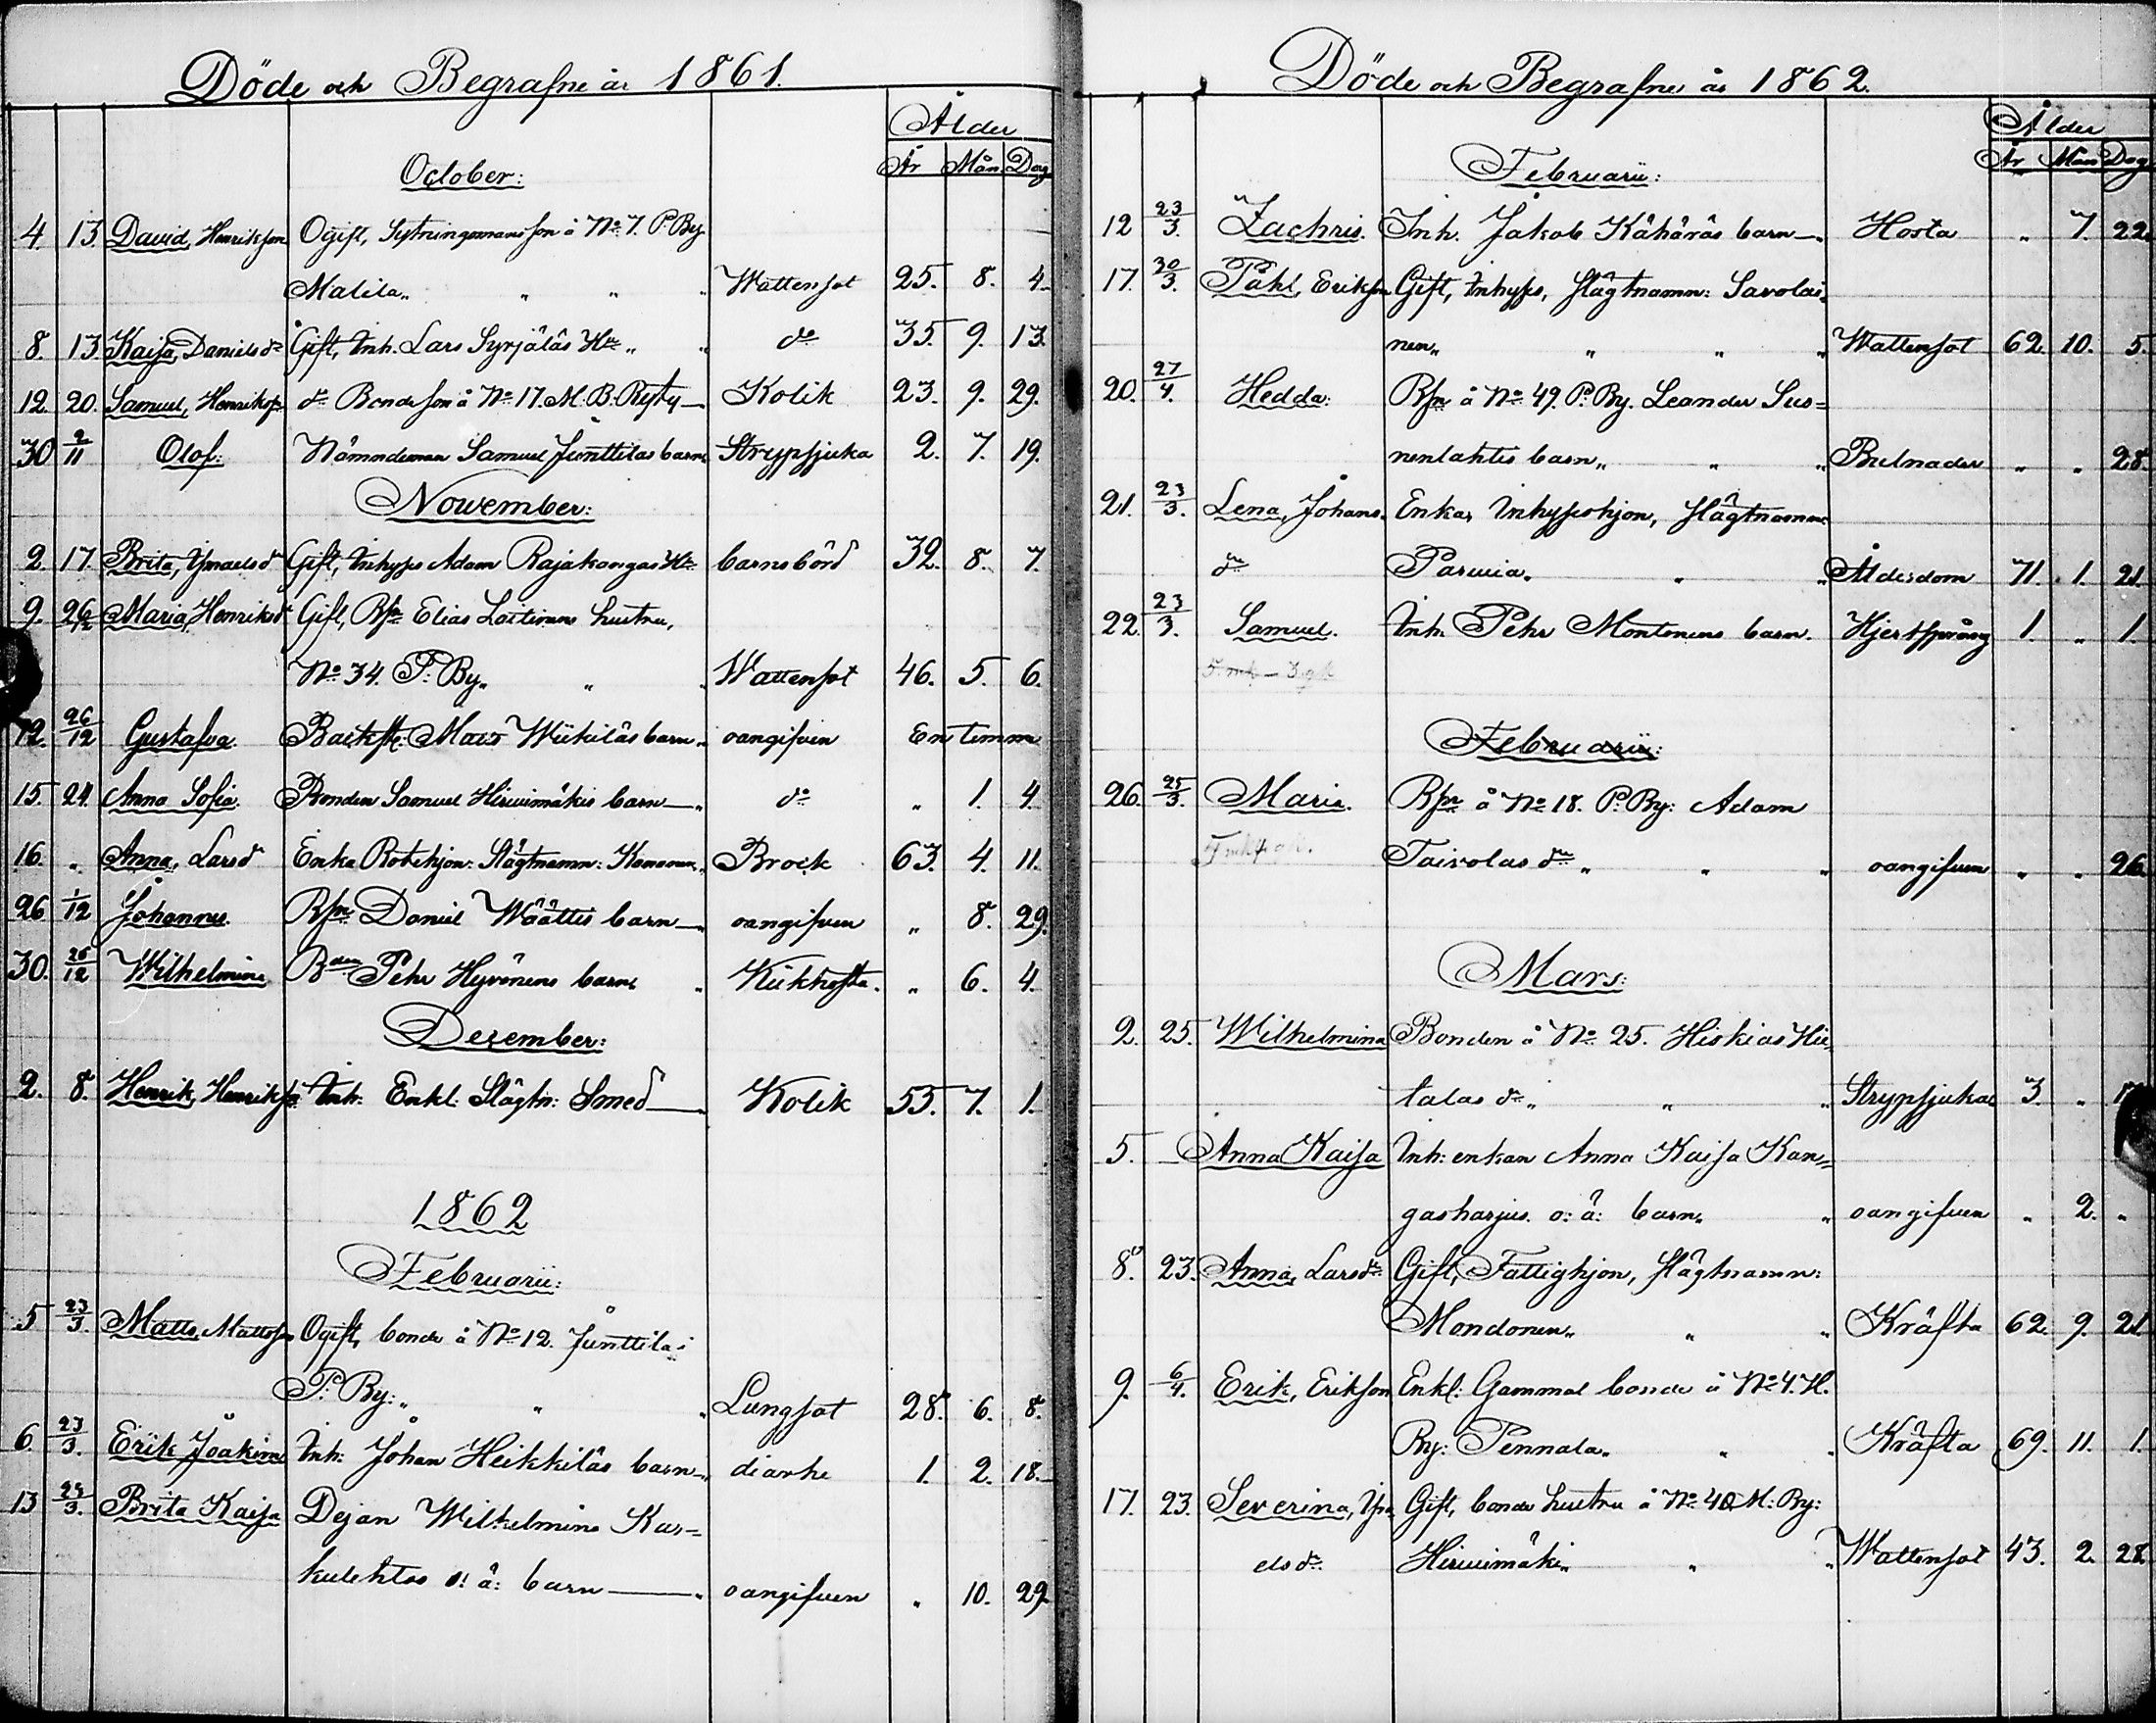 Döde och Begrafne år 1861.
Ålder
År Mån Dag
October:
4 13. David, Henrikson Ogift, Sytningsmans son å No 7. P. By
Malila „ „ „ „ Wattensot 25. 8. 4.
8. 13. Kaisa, Daniels dr Gift, Inh. Lars Syrjäläs Hu „ „ do 35. 9. 13.
12. 20. Samuel, Henriks. do Bondeson å No 17. M. B. Ryty Kolik 23. 9. 29.
30 2/11 Olof. Nämndeman Samuel Junttilas barn Strypsjuka 2. 7. 19.
Nowember:
2. 17. Brita, Ismaels dr Gift, Inhyses Adam Rajakangas Hu barnsbörd 32. 8. 7.
9. 26/12 Maria, Henriks dr Gift, Bfr Elias Loitinens hustru,
No 34. P. By „ „ „ Wattensot 46. 5. 6.
12. 26/12 Gustafva. Backst: Mats Wiikiläs barn „ oangifven En timme
15. 24. Anna Sofia. Bonden Samuel Hirvimäkis barn „ do „ 1. 4.
16. „ Anna, Lars dr Enka Rotehjon: Slägtnamn: „ Brock 63. 4. 11.
26 1/12 Johannes. Bfr Daniel Wäättis barn „ oangifven „ 8. 29.
30. 26/12 Wilhelmina Bden Pehr Hyvönens barn „ Kikhosta. „ 6. 4.
Dezember:
2. 8. Henrik, Henrikss. Inh: Enkl. Slägtn: Smed Kolik 55. 7. 1.
1862
Februarii:
5 23/3. Matts, Mattsson Ogift, bonde å No 12. Junttila i
P. By: „ „ „ Lungsot 28. 6. 8.
6. 23/3. Erik Joakim Inh: Johan Heikkiläs barn „ diarhe 1. 2. 18.
13 23/3. Brita Kaisa Dejan Wilhelmina Kar=
kulehtos o: ä: barn „ oangifven „ 10. 29.
Döde och Begrafne år 1862.
Ålder
År Mån Dag
Februarii:
12 23/3. Zachris. Inh. Jakob Kähäräs barn „ Hosta „ 7. 22.
17. 30/3. Påhl, Erikson Gift, Inhyses, slägtnamn: Savolai
nen „ „ „ „ Wattensot 62. 10. 5.
20. 27/4. Hedda: Bfr å No 49. P. By. Leander Suo=
nenlahtis barn „ „ „ Bulnader „ „ 28.
21. 23/3. Lena, Johans Enka, Inhyseshjon, slägtnamn
dr Parvia. „ „ Ålderdom 71. 1. 21.
22. 23/3. Samuel. Inh. Pehr Montonens barn. Hjertsprång 1. „ 1.
Februarii:
26. 25/3. Maria. Bfr å No 18. P. By: Adam
Taivolas dr „ „ „ oangifven „ „ 26.
Mars:
2. 25. Wilhelmina Bonden å No 25. Hiskias Hie
talas dr „ „ „ Strypsjuka 3. „
5. Anna Kaisa Inh: enkan Anna Kaisa Kan=
gasharjus o: ä: barn „ „ oangifven „ 2. „
8. 23. Anna, Lars dr Gift, Fattighjon, slägtnamn:
Mondonen „ „ „ Kräfta 62. 9. 21.
9. 6/4. Erik, Erikson Enkl: Gammal bonde å No 4. H.
By: Pennala „ „ „ Kräfta 69. 11. 1.
17. 23. Severina, Isra Gift, bonde hustru å No 40 M: By:
els dr Hirvimäki „ „ „ Wattensot 43. 2. 28.